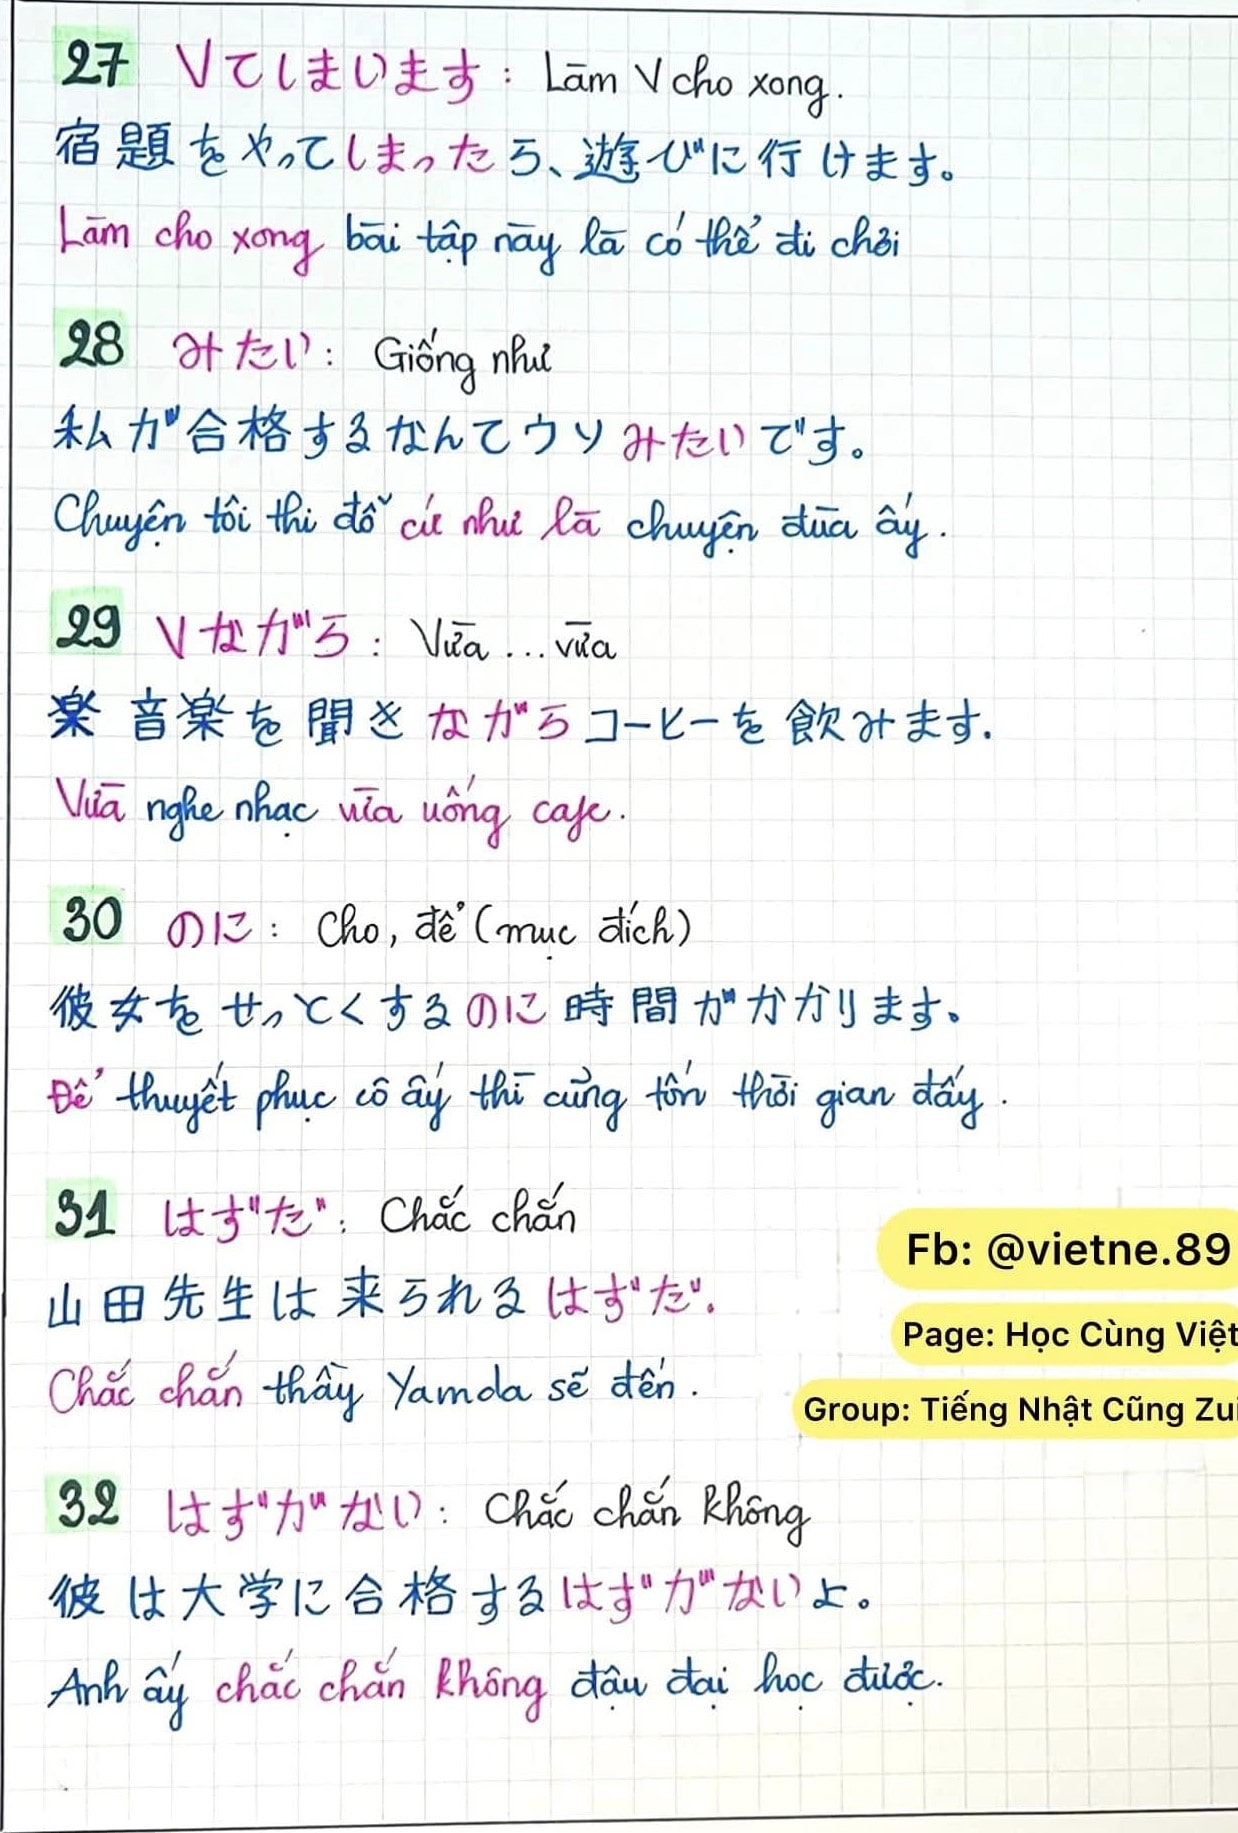 27 Vてしまいます : Làm V cho xong.
宿題をやってしまったら、遊びに行けます。
Làm cho xong bài tập này là có thể đi chơi
28 みたい : Giống như
私が合格するなんてウソみたいです。
Chuyện tôi thi đỗ cứ như là chuyện đùa ấy.
29 Vながら : Vừa ... vừa
楽 音楽を聞きながらコーヒーを飲みます.
Vừa nghe nhạc vừa uống cafe.
30 のに : Cho, để (mục đích)
彼女をせっとくするのに時間がかかります。
Để thuyết phục cô ấy thì cũng tốn thời gian đấy.
31 はずだ : Chắc chắn
Fb: @vietne.89
山田先生は来られるはずだ.
Page: Học Cùng Việt
Chắc chắn thầy Yamda sẽ đến.
Group: Tiếng Nhật Cũng Zui
32 はずがない : Chắc chắn không
彼は大学に合格するはずがないよ。
Anh ấy chắc chắn không đậu đại học được.